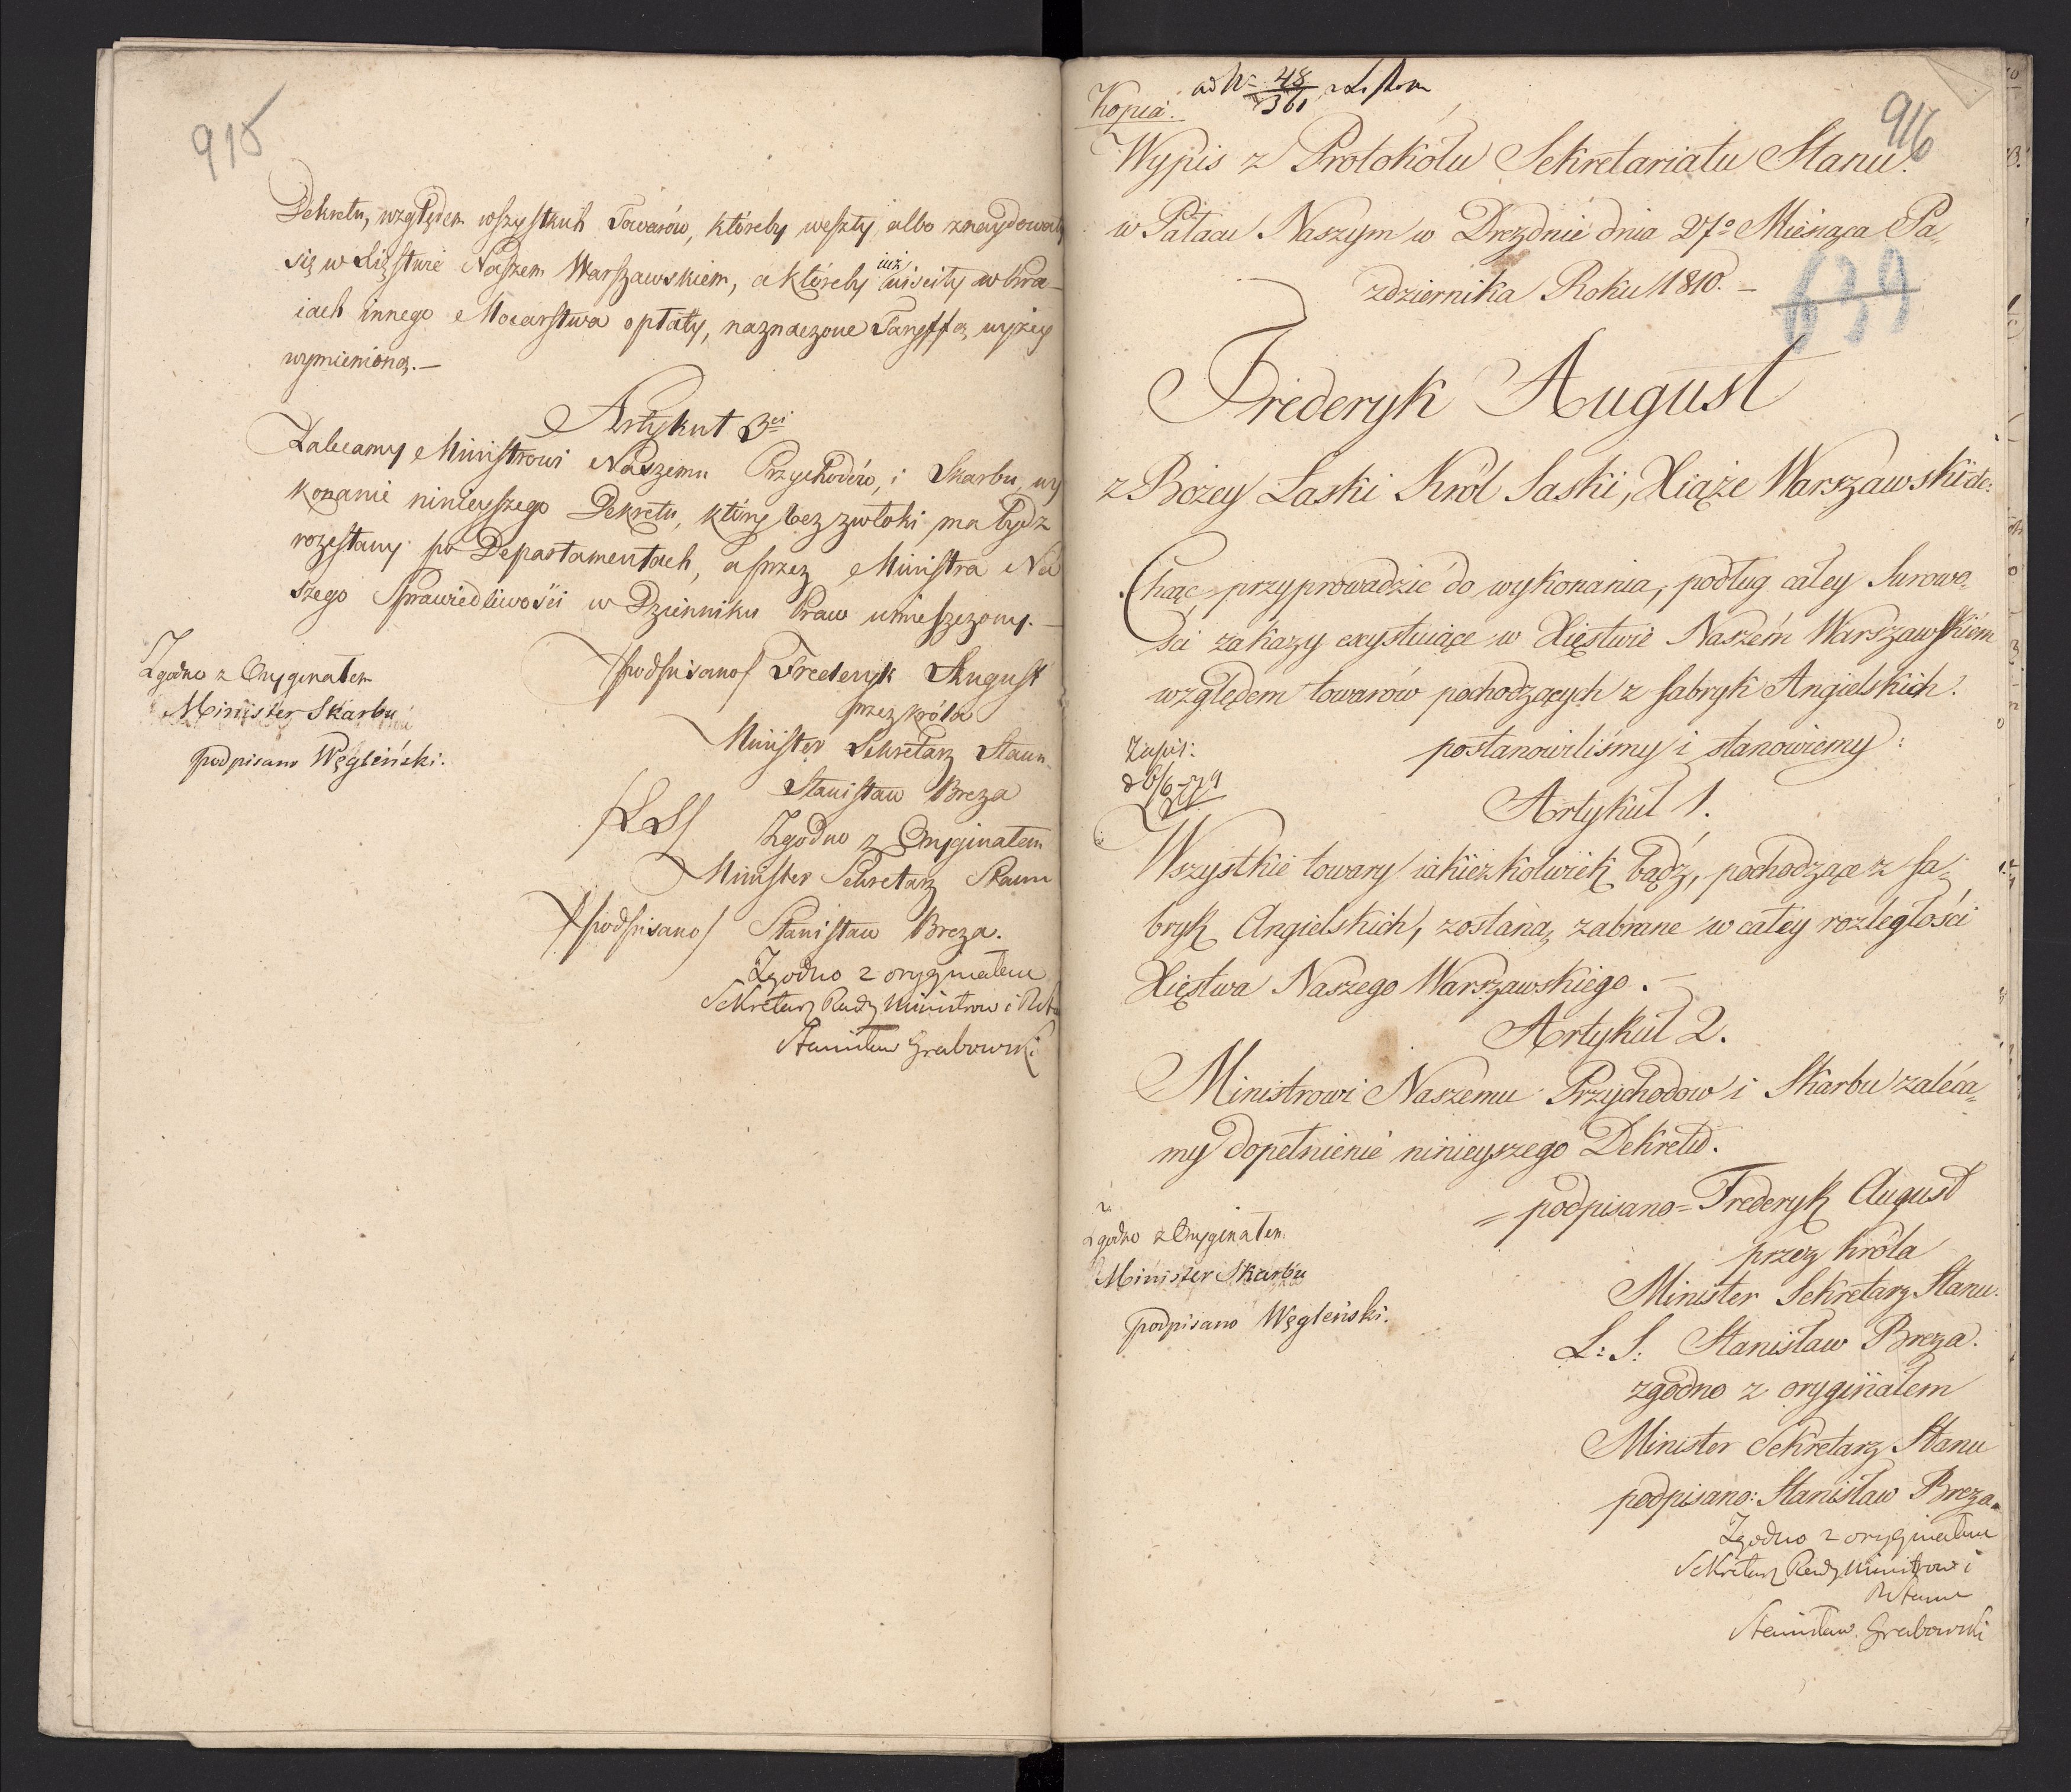 915
Dekretu, względem wszystkich Towarów, któreby weszły albo znaydowały
się w Xięstwie Naszem Warszawskiem, a któreby iuż uiściły w kra-
iach innego Mocarstwa opłaty, naznaczone Taryffą wyżey
wymienioną.—
Artykuł 3ci
Zalecamy Ministrowi Naszemu Przychodów, i Skarbu, wy
konanie ninieyszego Dekretu, który bez zwłoki ma bydz
rozesłany po Departamentach, a przez Ministra Na
szego Sprawiedliwości w Dzienniku Praw umieszczony.—
/podpisano/ Frederyk August
przez Króla
Minister Sekretarz Stanu
Stanisław Breza
/LS/ Zgodno z Oryginałem
Minister Sekretarz Stanu
/podpisano/ Stanisław Breza.
Zgodno z oryginałem
Sekretarz Rady Ministrow i
Stanisław Grabowski
Zgodno z Oryginałem
Minister Skarbu
podpisano Węgleński.
916
Kopia. ad N= 48/361
Wypis z Protokółu Sekretariatu Stanu.
w Pałacu Naszym w Dreźdnie dnia 27o Miesiąca Pa-
ździernika Roku 1810.—
639
Frederyk August
z Bożey Łaski Król Saski, Xiąże Warszawski etc:
Chcąc przyprowadzić do wykonania, podług całey Surowo-
ści zakazy exystuiące w Xięstwie Naszém Warszawskiém
względem towarów pochodzących z fabryk Angielskich.
postanowiliśmy i stanowiemy:
Artykuł 1.
Wszystkie towary iakieżkolwiek bądź, pochodzące z fa-
bryk Angielskich, zostaną zabrane w całey rozległości
Xięstwa Naszego Warszawskiego.—
Artykuł 2.
Ministrowi Naszemu Przychodow i Skarbu zaleca-
my dopełnienie ninieyszego Dekretu.
= podpisano = Frederyk August
przez Króla
Minister Sekretarz Stanu.
L: S: Stanisław Breza.
zgodno z oryginałem
Minister Sekretarz Stanu
podpisano: Stanisław Breza.
Zgodno z oryginałem
Sekretarz Rady Ministrow i
Stanisław Grabowski
Zgodno z Oryginałem.
Minister Skarbu
podpisano Węgleński.